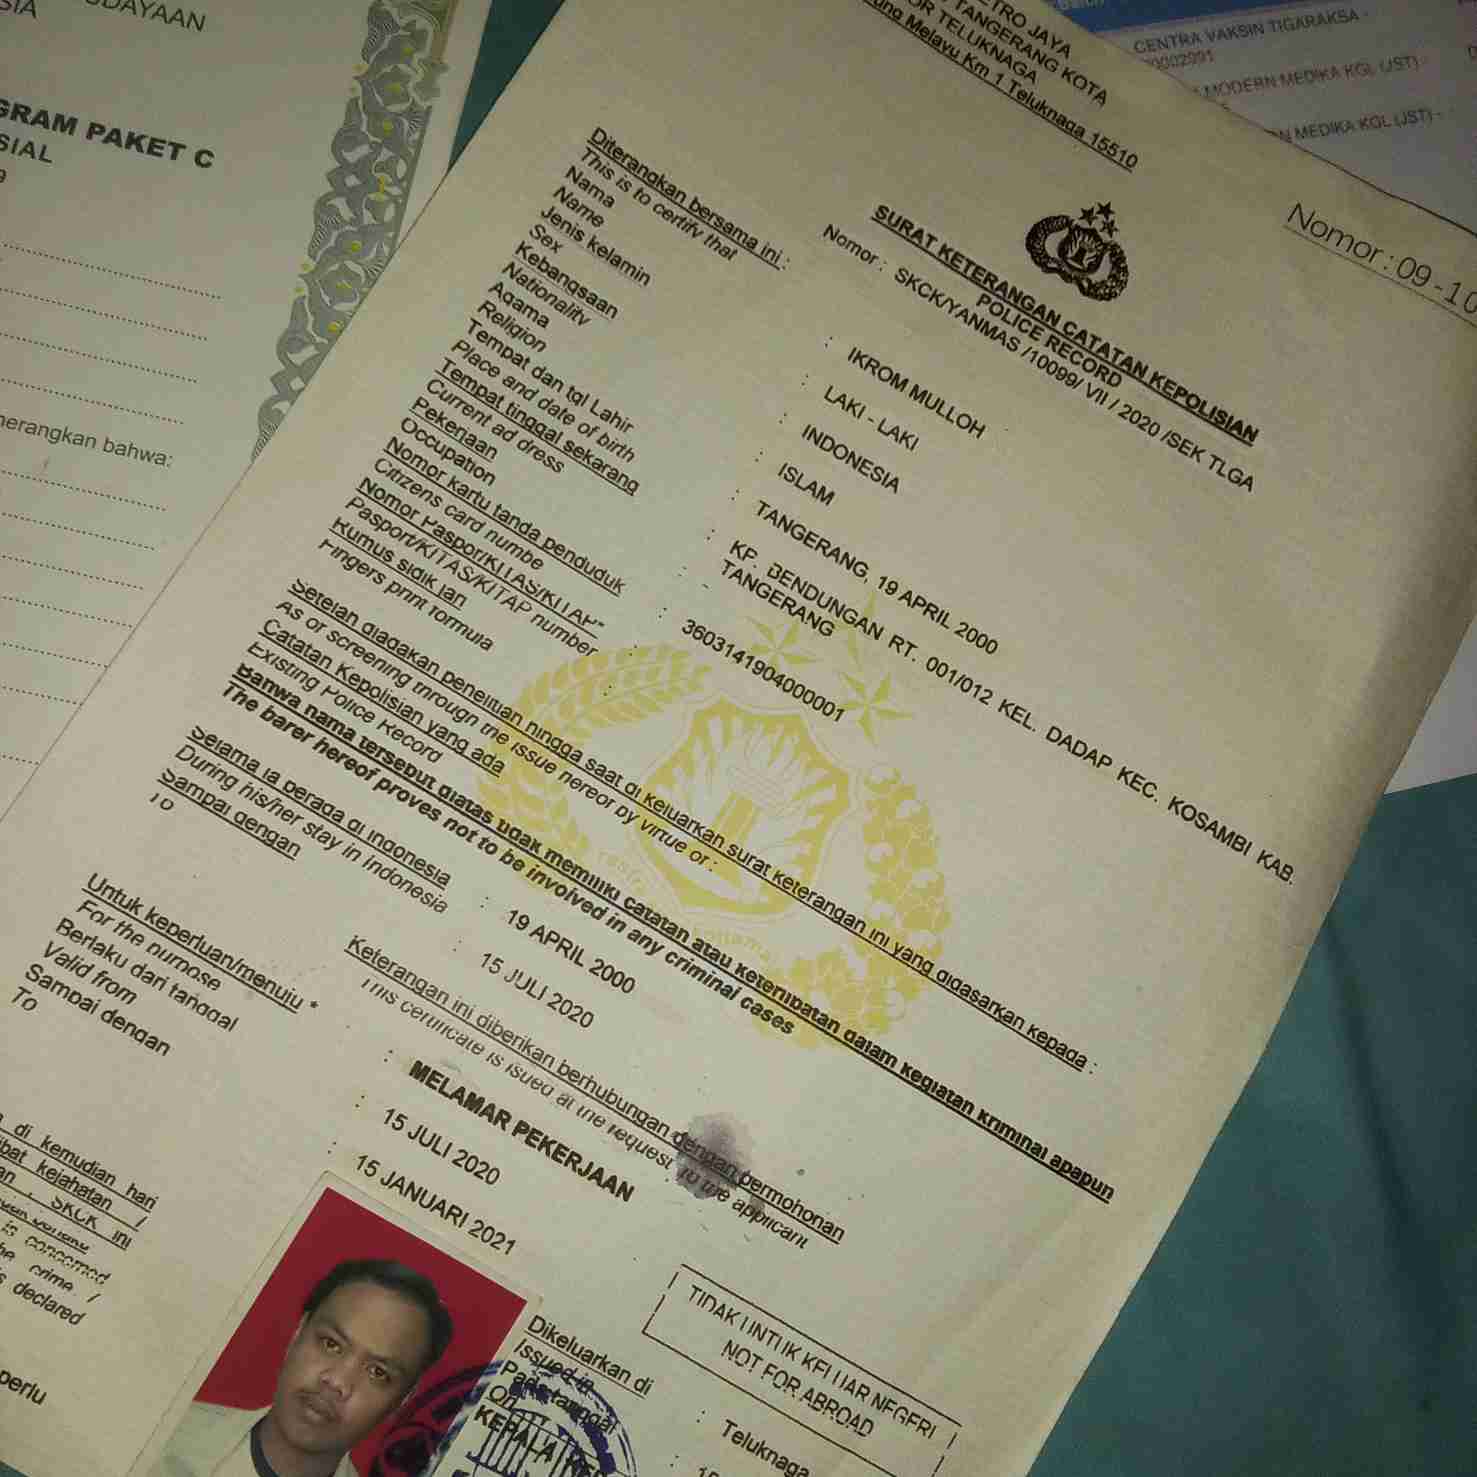 DAYAAN
GRAM PAKET C
SIAL
nerangkan bahwa:
CENTRA VAKSIN TIGARAKSA -
MODERN MEDIKA KGL (JST) -
MEDIKA KGL (JST) -
METRO JAYA
TANGERANG KOTA
OR TELUKNAGA
ung Melayu Km 1 Teluknaga 15510
Nomor : 09 - 10
SURAT KETERANGAN CATATAN KEPOLISIAN
POLICE RECORD
Nomor : SKCK/YANMAS /10099/ VII / 2020 /SEK TLGA
Diterangkan bersama ini :
This is to certify that
Nama : IKROM MULLOH
Name
Jenis kelamin : LAKI - LAKI
Sex
Kebangsaan : INDONESIA
Nationality
Agama : ISLAM
Religion
Tempat dan tgl Lahir : TANGERANG, 19 APRIL 2000
Place and date of birth
Tempat tinggal sekarang : KP. BENDUNGAN RT. 001/012 KEL. DADAP KEC. KOSAMBI KAB.
Current ad dress TANGERANG
Pekerjaan :
Occupation
Nomor kartu tanda penduduk : 3603141904000001
Citizens card numbe
Nomor Paspor/KITAS/KITAP* :
Pasport/KITAS/KITAP number
Rumus sidik jari :
Fingers print formula
Setelah diadakan penelitian hingga saat di keluarkan surat keterangan ini yang didasarkan kepada :
As of screening through the issue hereof by virtue of :
Catatan Kepolisian yang ada
Existing Police Record
Bahwa nama tersebut diatas tidak memiliki catatan atau keterlibatan dalam kegiatan kriminal apapun
The barer hereof proves not to be involved in any criminal cases
Selama ia berada di Indonesia : 19 APRIL 2000
During his/her stay in Indonesia
Sampai dengan : 15 JULI 2020
To
Keterangan ini diberikan berhubungan dengan permohonan
This certificate is isued at the request to the applicant
Untuk keperluan/menuju * : MELAMAR PEKERJAAN
For the purpose
Berlaku dari tanggal : 15 JULI 2020
Valid from
Sampai dengan : 15 JANUARI 2021
To
di kemudian hari
bat kejahatan /
SKCK ini
is concerned
the crime /
declared
perlu
TIDAK UNTUK KELUAR NEGERI
NOT FOR ABROAD
Dikeluarkan di : Teluknaga
Issued in
Pada tanggal : 15
On
KEPALA